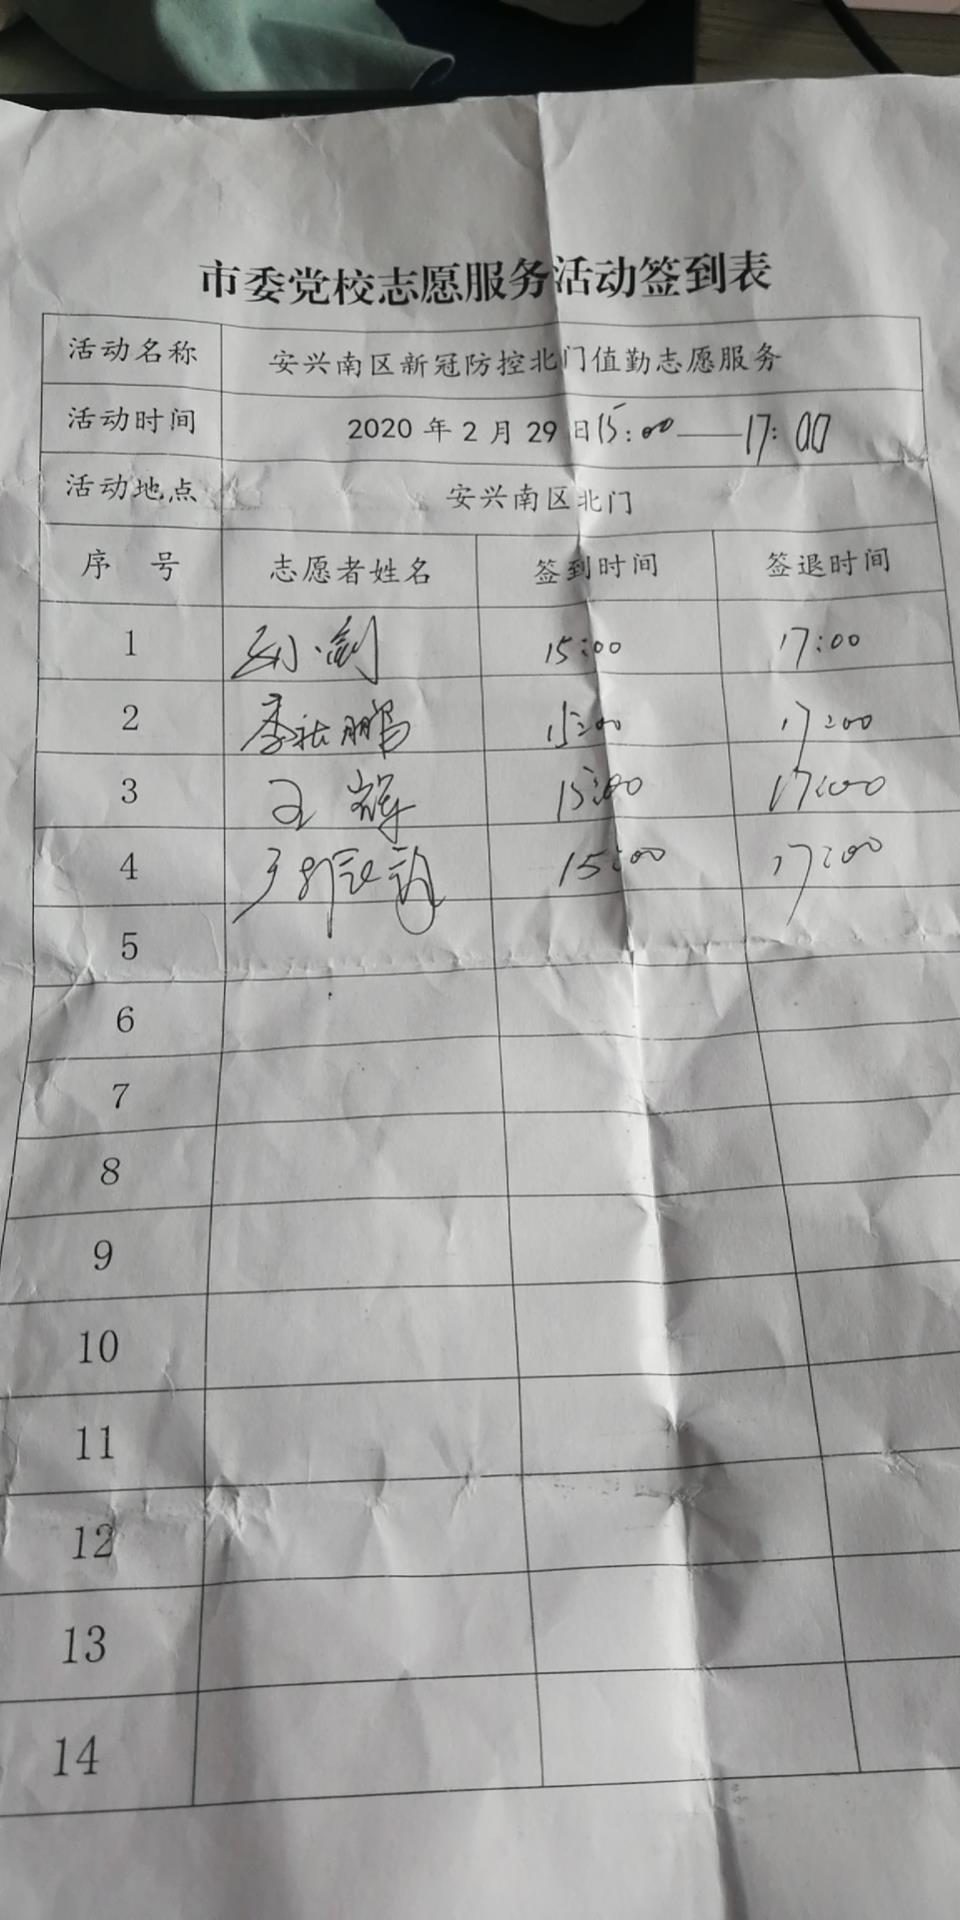 市委党校志愿服务活动签到表
活动名称 安兴南区新冠防控北门值勤志愿服务
活动时间 2020 年 2 月 29 日 15:00——17:00
活动地点 安兴南区北门
序 号 志愿者姓名 签到时间 签退时间
1 15:00 17:00
2 李 鹏 15:00 17:00
3 王辉 15:00 17:00
4 15:00 17:00
5
6
7
8
9
10
11
12
13
14